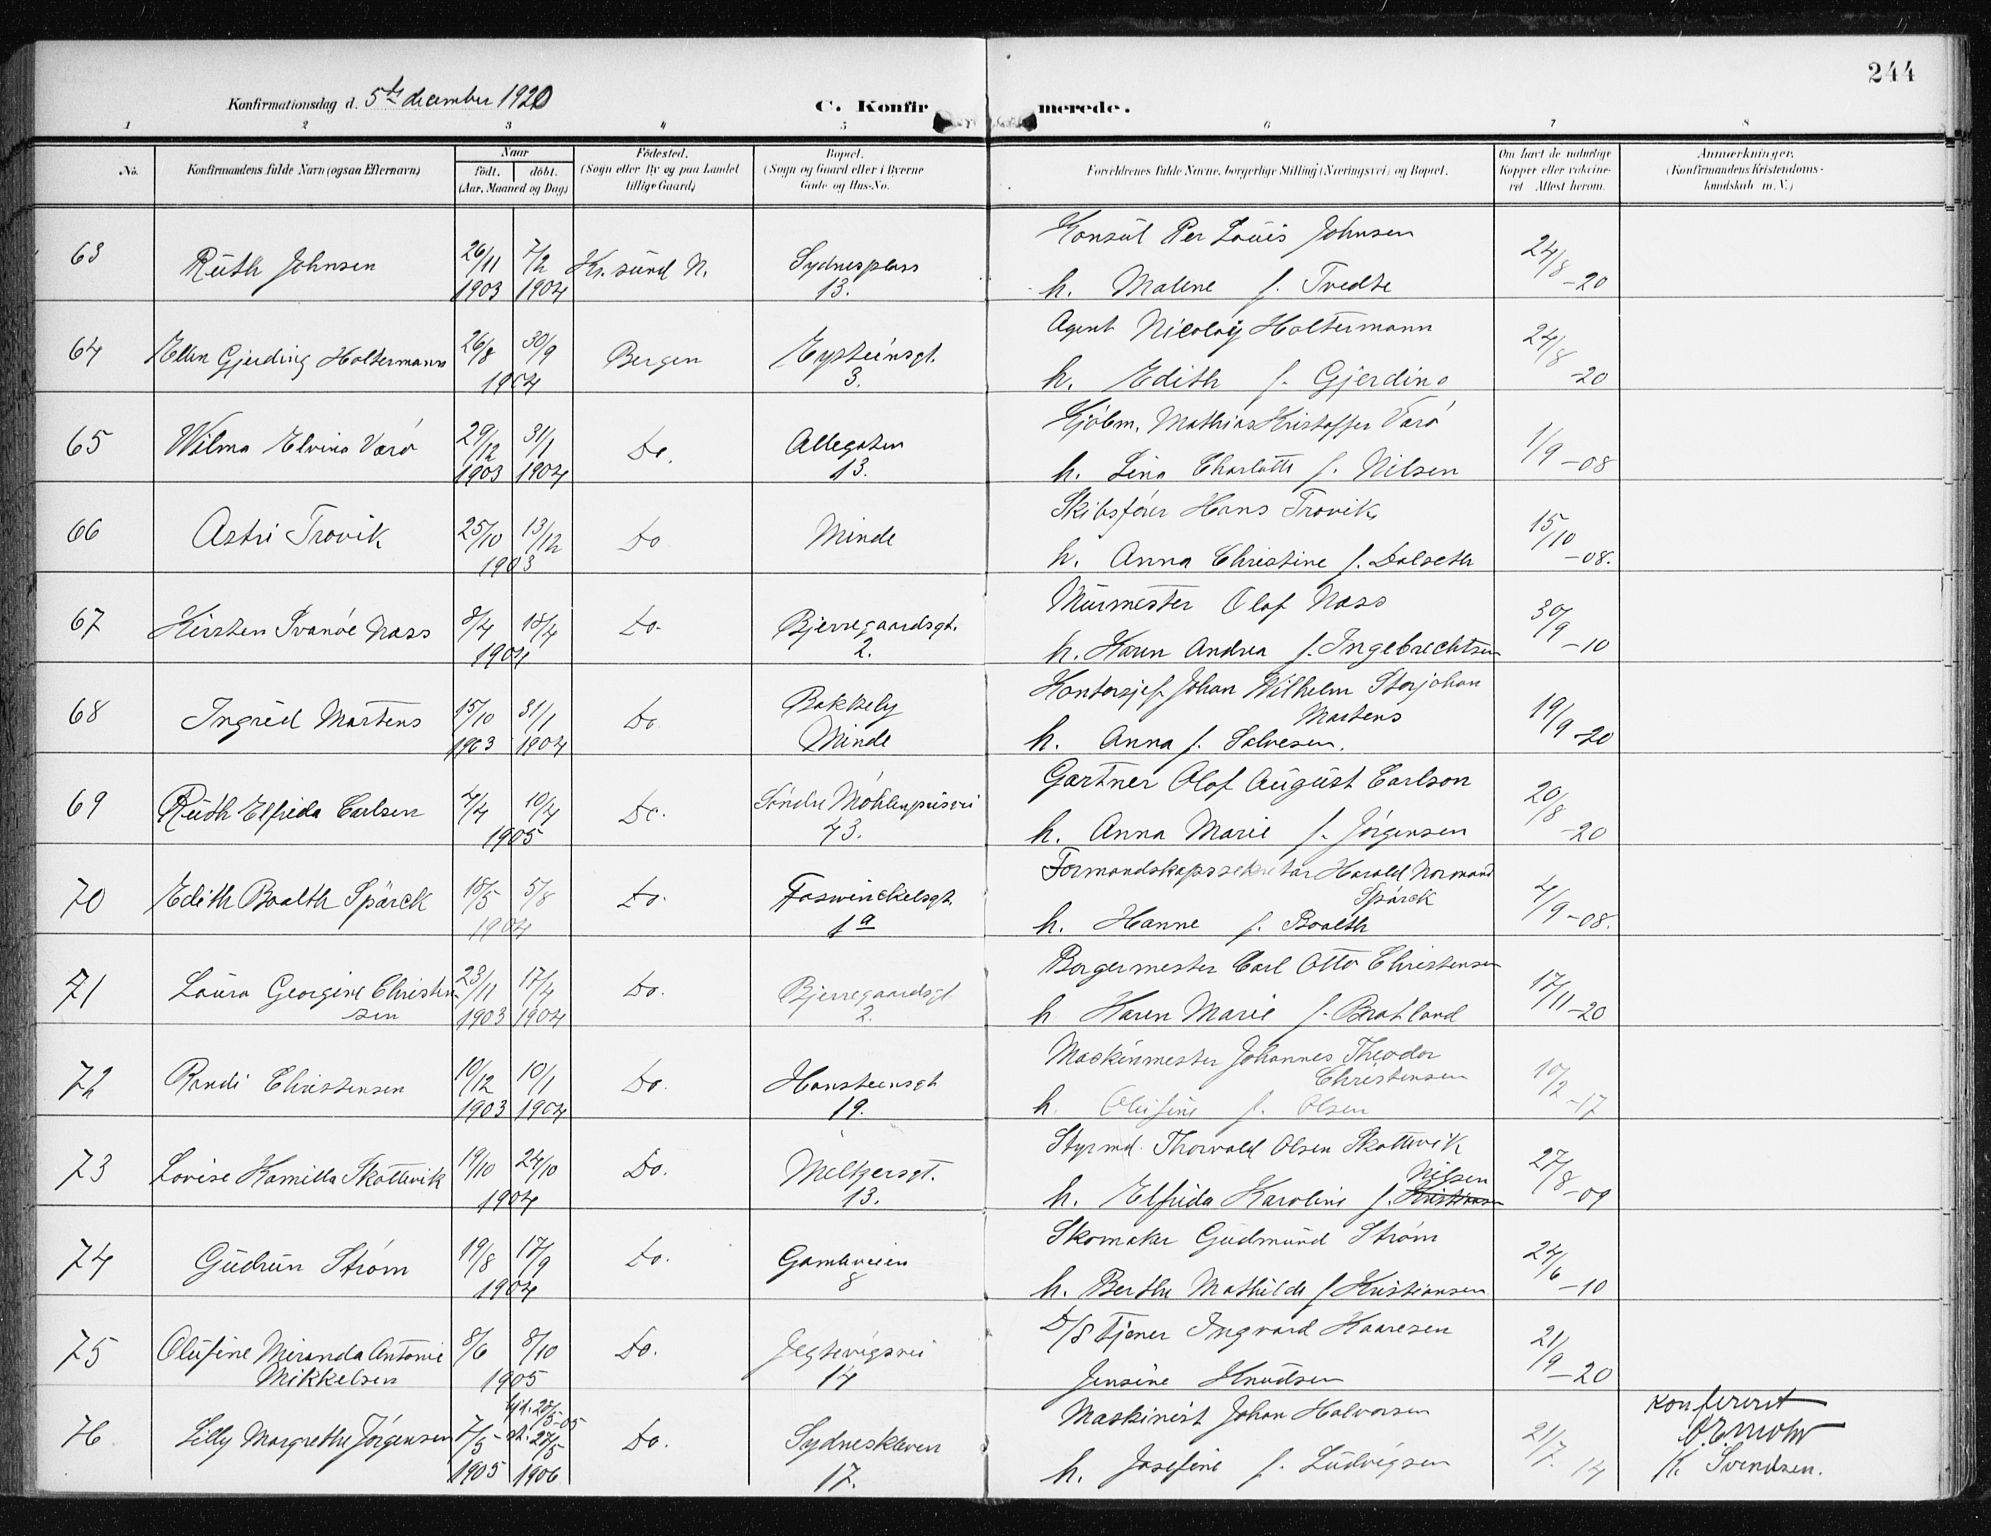 244
Konfirmationsdag d. 5te december 1920
C. Konfirmerede.
1 2 3 4 5 6 7 8
No. Konfirmandens fulde Navn (ogsaa Efternavn) Naar født. døbt. (Aar, Maaned og Dag) Fødested. (Sogn eller By og paa Landet tillige Gaard) Bopæl. (Sogn og Gaard eller i Byerne Gade og Hus-No. Forældrenes fulde Navne, borgerlige Stilling (Næringsvei) og Bopæl. Om havt de naturlige Kopper eller vakcineret. Attest herom. Anmærkninger. (Konfirmandens Kristendomskundskab m. V.)
63 Ruth Johnsen 26/11 1903 7/2 1904 Kr. sund N. Sydnesplass 13. Konsul Per Louis Johnsen 24/8 -20
h. Malene f. Tvedte
64 Ellen Gjerding Holtermann 26/8 30/9 1904 Bergen Eysteinsgt. 3. Agent Nicolay Holtermann 24/8 -20
h. Edith f. Gjerding
65 Wilma Elvina Varø 29/12 1903 31/1 1904 Do. Allegaten 13. Kjøbm. Mathias Kristoffer Varø 1/9 -08
h. Lina Charlotte f. Nilsen
66 Astri Trovik 25/10 13/12 1903 Do Minde Skibsfører Hans Trovik 15/10 -08.
h. Anna Christine f. Dalseth
67 Kirsten Svanøe Nass 8/4 18/4 1904 Do. Bjerregaardsgt. 2. Murmester Olaf Nass 30/9 -10
h. Karen Andrea f. Ingebrechtsen
68 Ingrid Martens 15/10 1903 31/1 1904 Do. Bakkely Minde Kontorsjef Johan Wilhelm Storjohan Martens 19/9 -20
h. Anna f. Salvesen.
69 Ruth Elfrida Carlsen 4/4 10/4 1905 Do. Søndre Møhlenprisvei 43. Gartner Olof August Carlson 20/8 -20
h. Anna Marie f. Jørgensen
70 Edith Boalth Spärck 18/5 5/8 1904 Do. Foswinckelsgt. 1a Formandskapssekretær Harald Normand Spärck 4/9 -08.
h. Hanne f. Boalth
71 Laura Georgine Christensen 23/11 1903 17/4 1904 Do. Bjerregaardsgt. 2. Borgermester Carl Otto Christensen 17/11 -20
h Karen Marie f. Bratland
72 Randi Christensen 10/12 1903 10/1 1904 Do. Hansteensgt 19. Maskinmester Johannes Theodor Christensen 10/2 -17
h. Olufine f. Olsen
73 Lovise Kamilla Skottevik 19/10 24/10 1904 Do. Meltzersgt. 13. Styrmd. Thorvald Olsen Skottevik 27/8 -09
h. Elfrida Karoline f. Kristiansen Nilsen
74 Gudrun Strøm 19/8 17/9 1904 Do. Gamleveien 8 Skomaker Gudmund Strøm 24/6 -10
h. Berthe Mathilde f Kristiansen
75 Olufine Miranda Antonie Mikkelsen 8/6 8/10 1905 Do. Jegtevigsvei 14 D/S Tjener Ingvard Kaaresen 21/9 -20
Jensine Knudsen
76 Lilly Margrethe Jørgensen 7/5 1905 hj.d. 28/5-05 st. 27/5 1906 Do. Sydneskleven 17. Maskinist Johan Halvorsen 21/7. 14 Konfereret
h. Josefine f. Ludvigsen K. Svendsen.